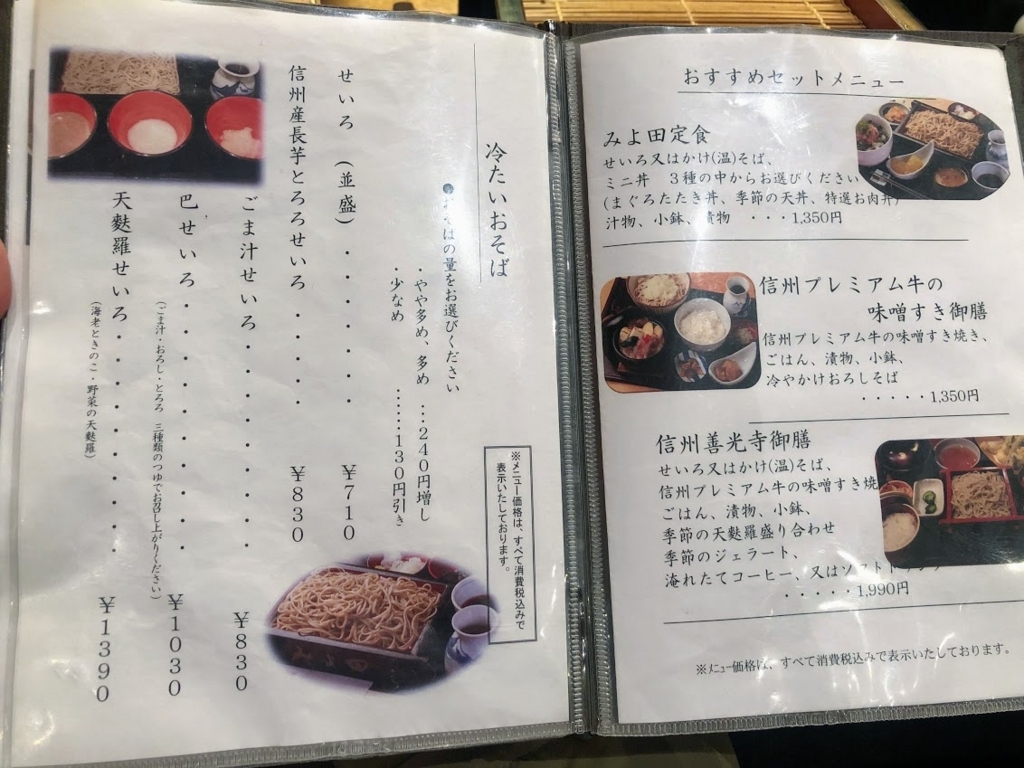 冷たいおそば
●おそばの量をお選びください
・やや多め、多め …240円増し
・少なめ ……130円引き
せいろ (並盛)・・・・・ ¥710
信州産長芋とろろせいろ・・・・ ¥830
ごま汁せいろ・・・・・・・ ¥830
巴せいろ・・・・・・・・ ¥1030
(ごま汁・おろし・とろろ 三種類のつゆでお召し上がりください)
天麩羅せいろ・・・・・・・ ¥1390
(海老ときのこ・野菜の天麩羅)
※メニュー価格は、すべて消費税込みで
表示いたしております。
おすすめセットメニュー
みよ田定食
せいろ又はかけ(温)そば、
ミニ丼 3種の中からお選びください
(まぐろたたき丼、季節の天丼、特選お肉丼)
汁物、小鉢、漬物 ・・・1,350円
信州プレミアム牛の
味噌すき御膳
信州プレミアム牛の味噌すき焼き、
ごはん、漬物、小鉢、
冷やかけおろしそば
・・・・・1,350円
信州善光寺御膳
せいろ又はかけ(温)そば、
信州プレミアム牛の味噌すき焼
ごはん、漬物、小鉢、
季節の天麩羅盛り合わせ
季節のジェラート、
淹れたてコーヒー、又はソフトドリンク
・・・・・1,990円
※メニュー価格は、すべて消費税込みで表示いたしております。